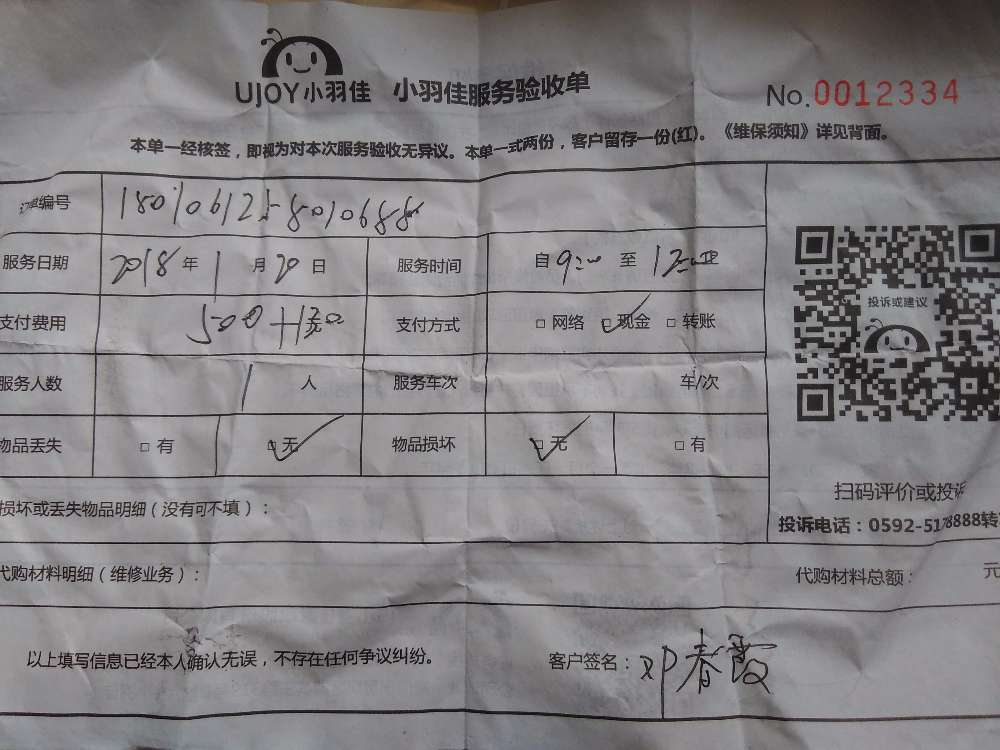 UJOY小羽佳 小羽佳服务验收单 No.0012334
本单一经核签，即视为对本次服务验收无异议。本单一式两份，客户留存一份(红)。《维保须知》详见背面。
编号
服务日期 2018年1月20日 服务时间 自9:00至12:00
支付费用 500 支付方式 □网络 □现金 □转账
服务人数 1人 服务车次 车/次
物品丢失 □有 □无 物品损坏 □无 □有
投诉或建议
扫码评价或投诉
投诉电话：0592-5178888转
损坏或丢失物品明细（没有可不填）：
代购材料明细（维修业务）： 代购材料总额： 元
以上填写信息已经本人确认无误，不存在任何争议纠纷。 客户签名：邓春霞